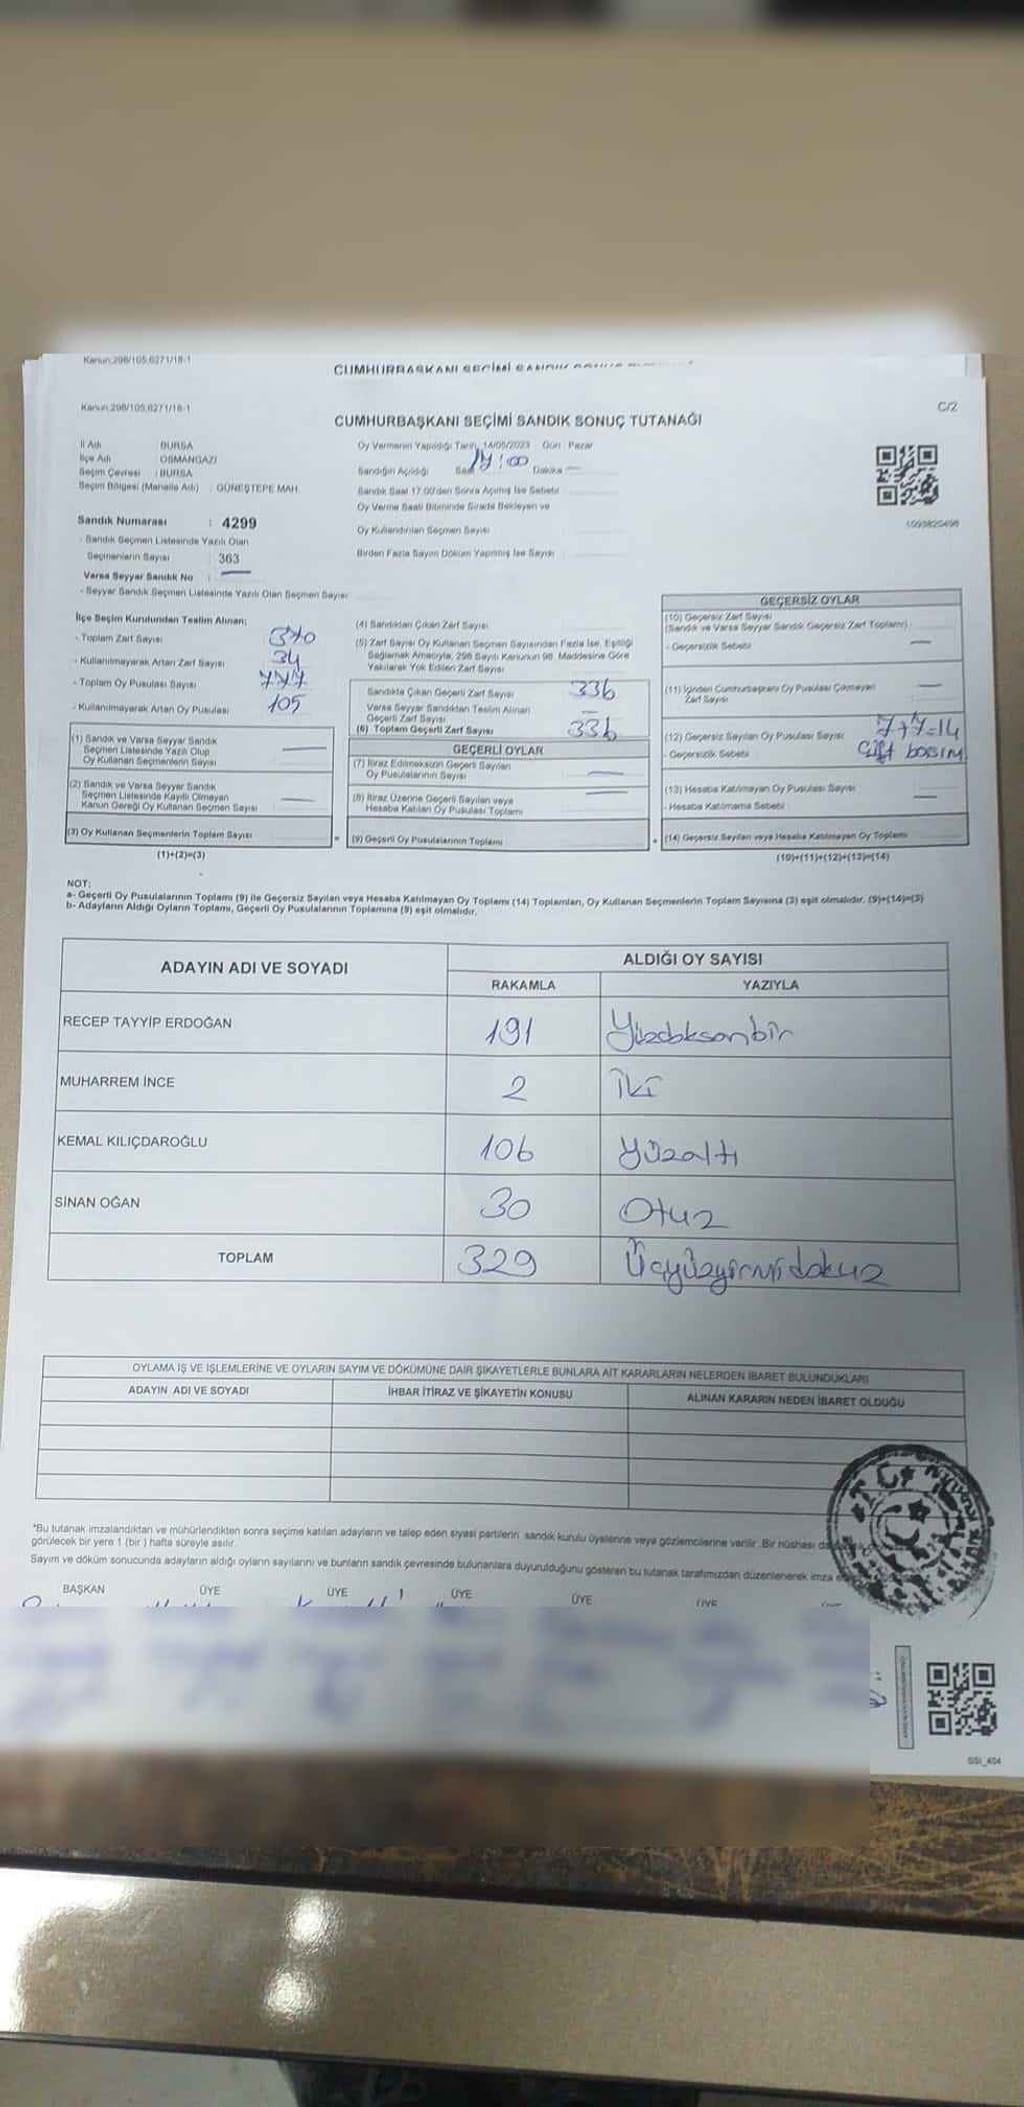 Kanun:298/105,6271/18-1
CUMHURBAŞKANI SEÇİMİ SANDIK
Kanun:298/105,6271/18-1
C/2
CUMHURBAŞKANI SEÇİMİ SANDIK SONUÇ TUTANAĞI
İl Adı : BURSA
İlçe Adı : OSMANGAZİ
Seçim Çevresi : BURSA
Seçim Bölgesi (Mahalle Adı) : GÜNEŞTEPE MAH.
Sandık Numarası : 4299
- Sandık Seçmen Listesinde Yazılı Olan
Seçmenlerin Sayısı 363
Varsa Seyyar Sandık No : —
- Seyyar Sandık Seçmen Listesinde Yazılı Olan Seçmen Sayısı
Oy Vermenin Yapıldığı Tarih 14/05/2023 Gün : Pazar
Sandığın Açıldığı Saat 17:00 Dakika —
Sandık Saat 17.00'den Sonra Açılmış İse Sebebi
Oy Verme Saati Bitiminde Sırada Bekleyen ve
Oy Kullandırılan Seçmen Sayısı
Birden Fazla Sayım Döküm Yapılmış İse Sayısı
İlçe Seçim Kurulundan Teslim Alınan;
- Toplam Zarf Sayısı 370
- Kullanılmayarak Artan Zarf Sayısı 34
- Toplam Oy Pusulası Sayısı
- Kullanılmayarak Artan Oy Pusulası 105
(1) Sandık ve Varsa Seyyar Sandık
Seçmen Listesinde Yazılı Olup
Oy Kullanan Seçmenlerin Sayısı —
(2) Sandık ve Varsa Seyyar Sandık
Seçmen Listesinde Kayıtlı Olmayan
Kanun Gereği Oy Kullanan Seçmen Sayısı —
(3) Oy Kullanan Seçmenlerin Toplam Sayısı
(1)+(2)=(3)
(4) Sandıktan Çıkan Zarf Sayısı
(5) Zarf Sayısı Oy Kullanan Seçmen Sayısından Fazla İse, Eşitliği
Sağlamak Amacıyla, 298 Sayılı Kanunun 98. Maddesine Göre
Yakılarak Yok Edilen Zarf Sayısı
Sandıkta Çıkan Geçerli Zarf Sayısı 336
Varsa Seyyar Sandıktan Teslim Alınan
Geçerli Zarf Sayısı —
(6) Toplam Geçerli Zarf Sayısı 336
GEÇERLİ OYLAR
(7) İtiraz Edilmeksizin Geçerli Sayılan
Oy Pusulalarının Sayısı —
(8) İtiraz Üzerine Geçerli Sayılan veya
Hesaba Katılan Oy Pusulası Toplamı —
(9) Geçerli Oy Pusulalarının Toplamı
GEÇERSİZ OYLAR
(10) Geçersiz Zarf Sayısı
(Sandık ve Varsa Seyyar Sandık Geçersiz Zarf Toplamı)
- Geçersizlik Sebebi —
(11) İçinden Cumhurbaşkanı Oy Pusulası Çıkmayan
Zarf Sayısı —
(12) Geçersiz Sayılan Oy Pusulası Sayısı 7+7=14
- Geçersizlik Sebebi Çift basım
(13) Hesaba Katılmayan Oy Pusulası Sayısı —
- Hesaba Katılmama Sebebi
(14) Geçersiz Sayılan veya Hesaba Katılmayan Oy Toplamı
(10)+(11)+(12)+(13)=(14)
NOT:
a- Geçerli Oy Pusulalarının Toplamı (9) ile Geçersiz Sayılan veya Hesaba Katılmayan Oy Toplamı (14) Toplamları, Oy Kullanan Seçmenlerin Toplam Sayısına (3) eşit olmalıdır. (9)+(14)=(3)
b- Adayların Aldığı Oyların Toplamı, Geçerli Oy Pusulalarının Toplamına (9) eşit olmalıdır.
ADAYIN ADI VE SOYADI
ALDIĞI OY SAYISI
RAKAMLA YAZIYLA
RECEP TAYYİP ERDOĞAN 191 Yüzdoksanbir
MUHARREM İNCE 2 İki
KEMAL KILIÇDAROĞLU 106 Yüzaltı
SİNAN OĞAN 30 Otuz
TOPLAM 329 Üçyüzyirmidokuz
OYLAMA İŞ VE İŞLEMLERİNE VE OYLARIN SAYIM VE DÖKÜMÜNE DAİR ŞİKAYETLERLE BUNLARA AİT KARARLARIN NELERDEN İBARET BULUNDUKLARI
ADAYIN ADI VE SOYADI İHBAR İTİRAZ VE ŞİKAYETİN KONUSU ALINAN KARARIN NEDEN İBARET OLDUĞU
*Bu tutanak imzalandıktan ve mühürlendikten sonra seçime katılan adayların ve talep eden siyasi partilerin sandık kurulu üyelerine veya gözlemcilerine verilir. Bir nüshası da
görülecek bir yere 1 (bir ) hafta süreyle asılır.
Sayım ve döküm sonucunda adayların aldığı oyların sayılarını ve bunların sandık çevresinde bulunanlara duyurulduğunu gösteren bu tutanak tarafımızdan düzenlenerek imza
BAŞKAN ÜYE ÜYE ÜYE ÜYE ÜYE
T.C.
SSI_404